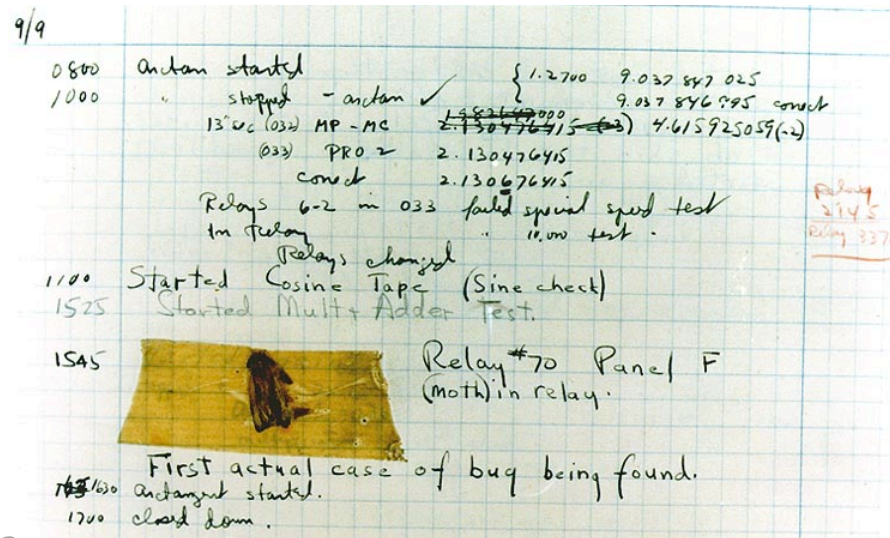 9/9
0800 antan started
1000 " stopped - antan ✓ { 1.2700 9.037 847 025
9.037 846 995 conect
13"uc (032) MP-MC 2.130476415 (-3) 4.615925059(-2)
(033) PRO 2 2.130476415
conect 2.130676415
Relays 6-2 in 033 failed special speed test
in relay " 10,000 test.
Relays changed
Relay
2145
Relay 337
1100 Started Cosine Tape (Sine check)
1525 Started Mult + Adder Test.
1545 Relay #70 Panel F
(moth) in relay.
First actual case of bug being found.
1630 antangent started.
1700 closed down.